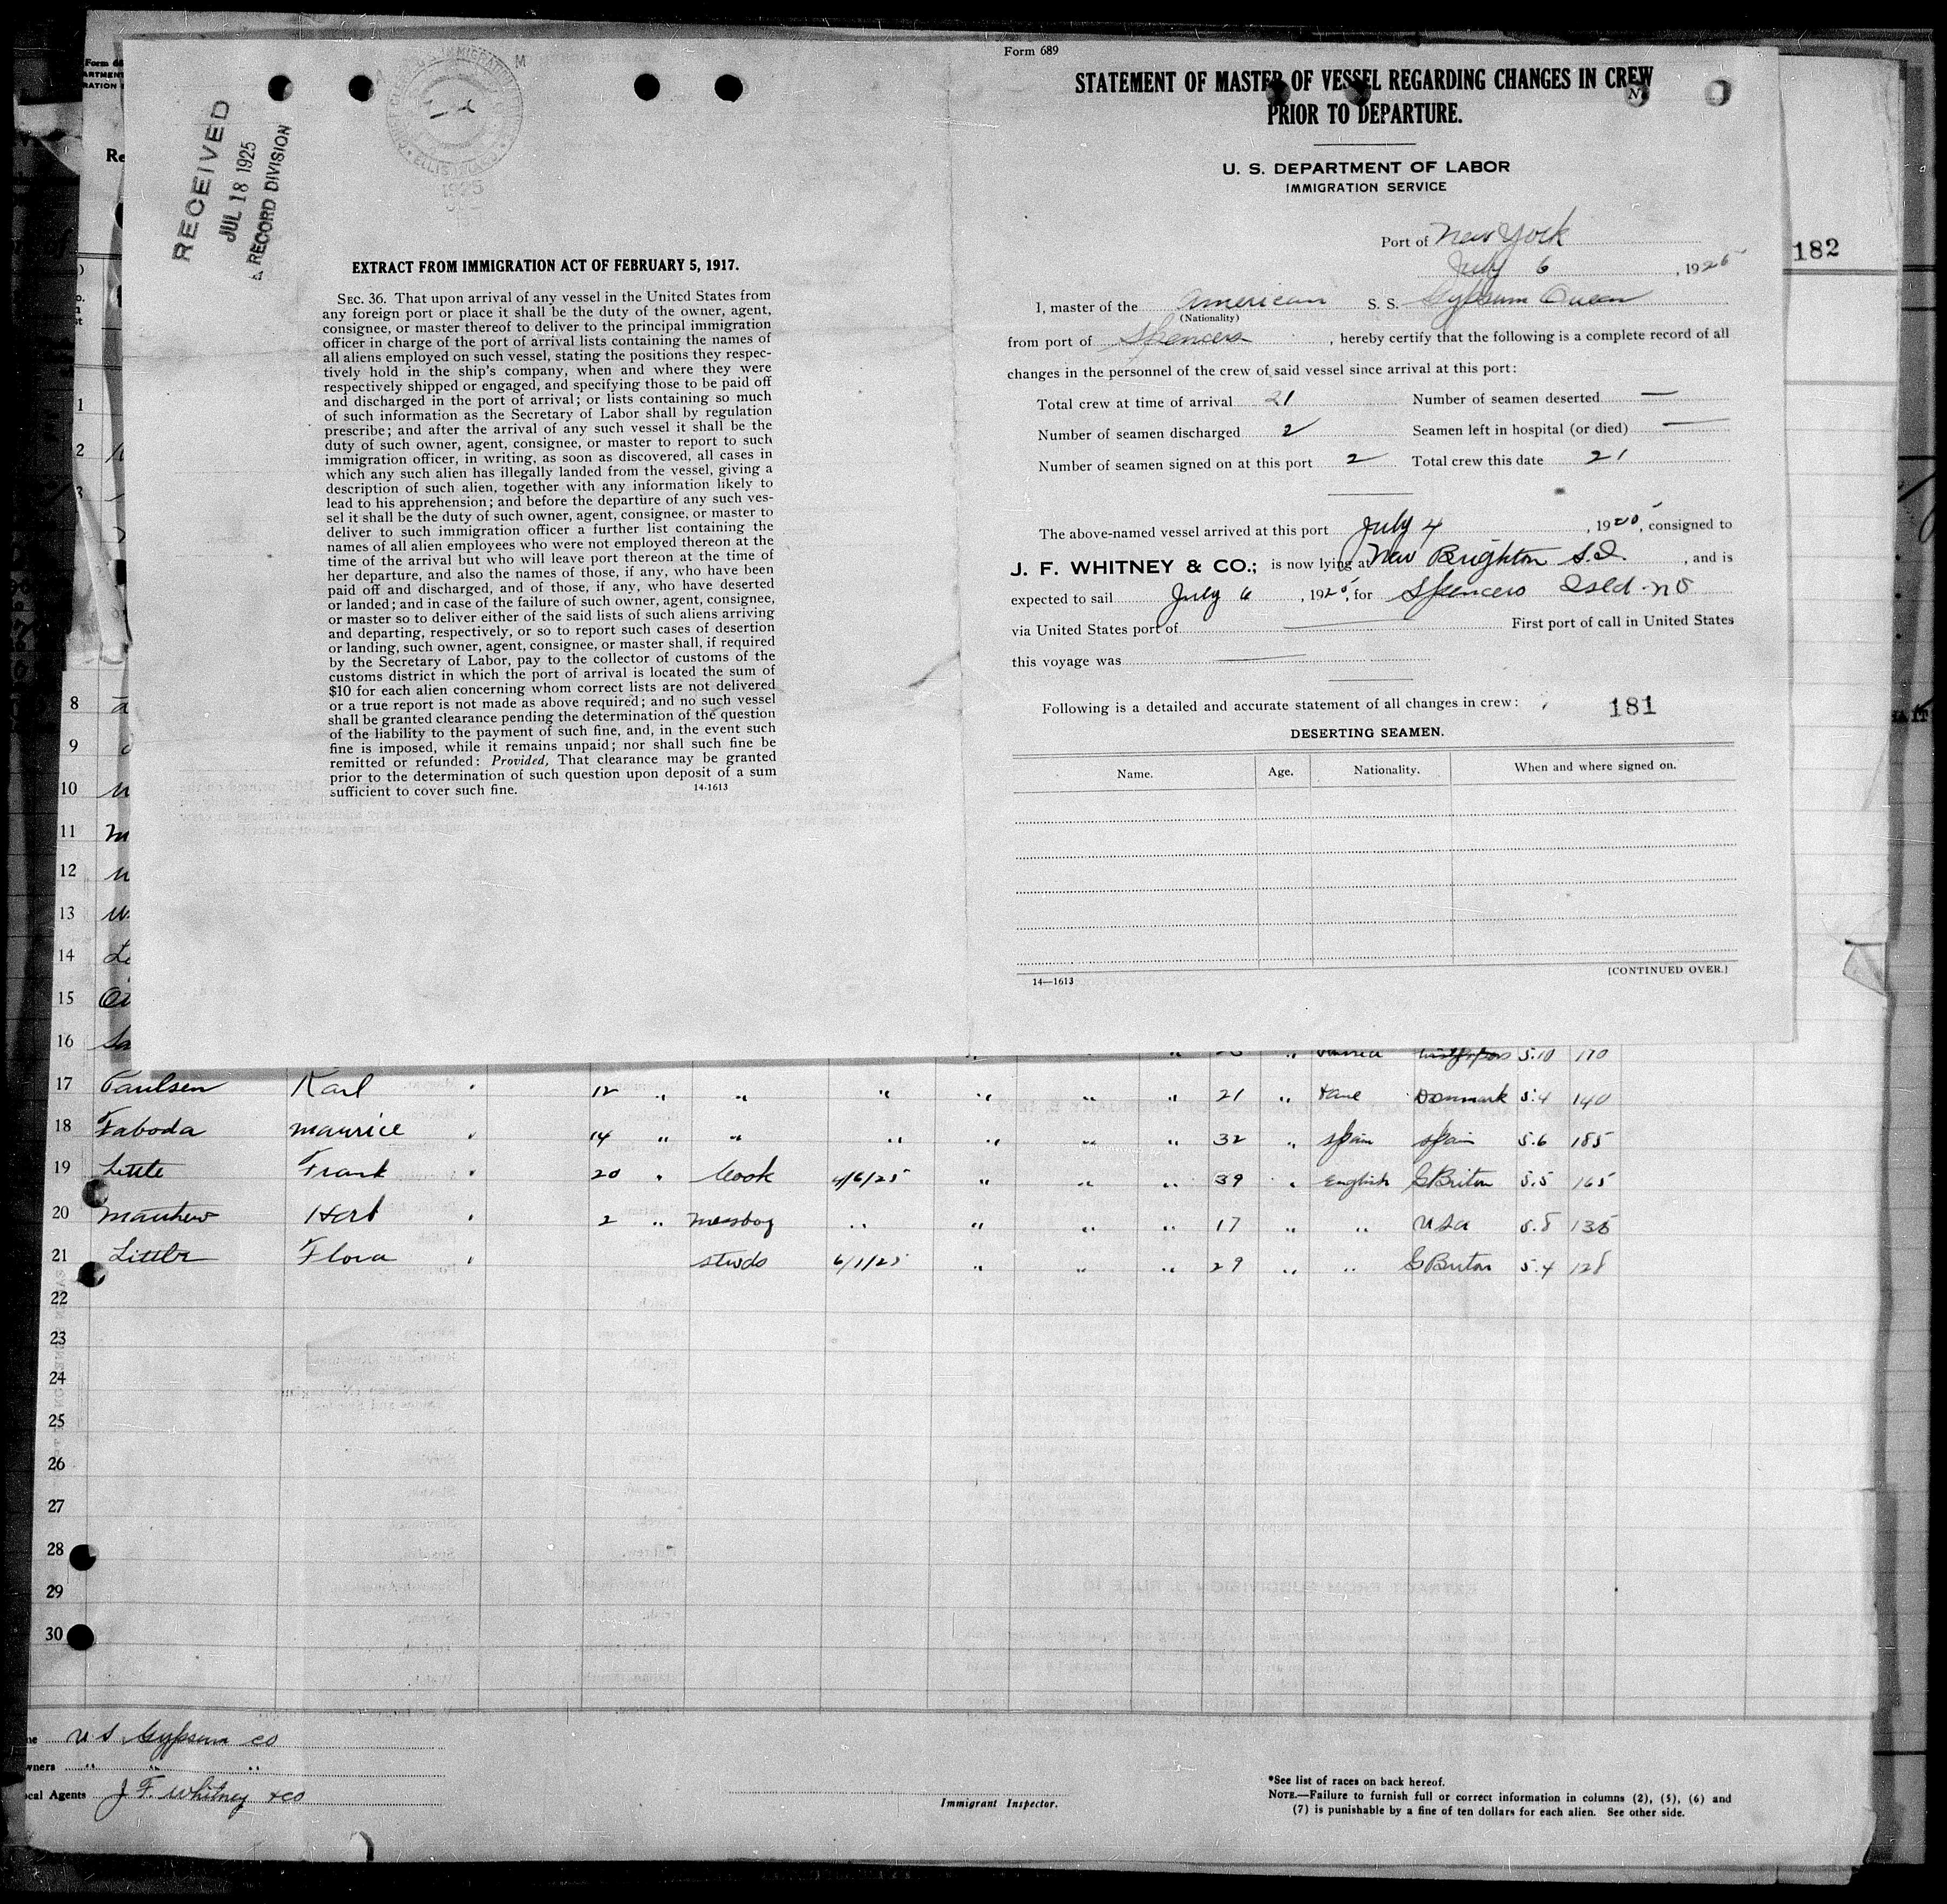 RECEIVED
JUL 18 1925
RECORD DIVISION
ELLIS
1925
EXTRACT FROM IMMIGRATION ACT OF FEBRUARY 5, 1917.
SEC. 36. That upon arrival of any vessel in the United States from
any foreign port or place it shall be the duty of the owner, agent,
consignee, or master thereof to deliver to the principal immigration
officer in charge of the port of arrival lists containing the names of
all aliens employed on such vessel, stating the positions they respec-
tively hold in the ship's company, when and where they were
respectively shipped or engaged, and specifying those to be paid off
and discharged in the port of arrival; or lists containing so much
of such information as the Secretary of Labor shall by regulation
prescribe; and after the arrival of any such vessel it shall be the
duty of such owner, agent, consignee, or master to report to such
immigration officer, in writing, as soon as discovered, all cases in
which any such alien has illegally landed from the vessel, giving a
description of such alien, together with any information likely to
lead to his apprehension; and before the departure of any such ves-
sel it shall be the duty of such owner, agent, consignee, or master to
deliver to such immigration officer a further list containing the
names of all alien employees who were not employed thereon at the
time of the arrival but who will leave port thereon at the time of
her departure, and also the names of those, if any, who have been
paid off and discharged, and of those, if any, who have deserted
or landed; and in case of the failure of such owner, agent, consignee,
or master so to deliver either of the said lists of such aliens arriving
and departing, respectively, or so to report such cases of desertion
or landing, such owner, agent, consignee, or master shall, if required
by the Secretary of Labor, pay to the collector of customs of the
customs district in which the port of arrival is located the sum of
$10 for each alien concerning whom correct lists are not delivered
or a true report is not made as above required; and no such vessel
shall be granted clearance pending the determination of the question
of the liability to the payment of such fine, and, in the event such
fine is imposed, while it remains unpaid; nor shall such fine be
remitted or refunded: Provided, That clearance may be granted
prior to the determination of such question upon deposit of a sum
sufficient to cover such fine. 14-1613
Form 689
STATEMENT OF MASTER OF VESSEL REGARDING CHANGES IN CREW
PRIOR TO DEPARTURE.
U. S. DEPARTMENT OF LABOR
IMMIGRATION SERVICE
Port of New York
July 6, 1925
I, master of the American S. S. Gypsum Queen
(Nationality)
from port of Spencers, hereby certify that the following is a complete record of all
changes in the personnel of the crew of said vessel since arrival at this port:
Total crew at time of arrival 21 Number of seamen deserted —
Number of seamen discharged 2 Seamen left in hospital (or died) —
Number of seamen signed on at this port 2 Total crew this date 21
The above-named vessel arrived at this port July 4, 1925, consigned to
J. F. WHITNEY & CO.; is now lying at New Brighton S.I., and is
expected to sail July 6, 1925, for Spencers Isld. NS
via United States port of — First port of call in United States
this voyage was —
Following is a detailed and accurate statement of all changes in crew:
181
DESERTING SEAMEN.
Name. Age. Nationality. When and where signed on.
14—1613 [CONTINUED OVER.]
182
1
2
3
8
9
10
11
12
13
14
15
16 5.10 170
17 Paulsen Karl 12 " " " " " " 21 " Dane Denmark 5.4 140
18 Faboda Maurice 14 " " " " " " 32 " Spain Spain 5.6 185
19 Little Frank 20 " Cook 4/6/25 " " " 39 " English G Briton 5.5 165
20 Matthew Herb 2 " messboy " " " " 17 " " USA 5.8 135
21 Little Flora stwds 6/1/25 " " " 29 " " G Briton 5.4 128
22
23
24
25
26
27
28
29
30
U S Gypsum Co
wners " " "
cal Agents J F. Whitney & Co
Immigrant Inspector.
*See list of races on back hereof.
NOTE.—Failure to furnish full or correct information in columns (2), (5), (6) and
(7) is punishable by a fine of ten dollars for each alien. See other side.